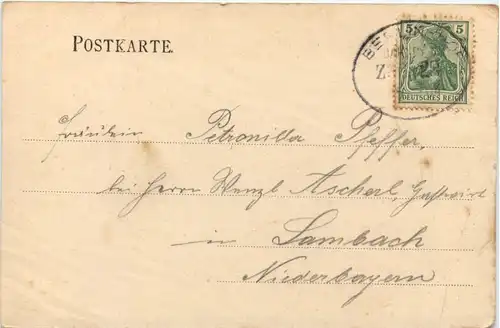 POSTKARTE.
5 5
DEUTSCHES REICH
Fräulein Petronilla Pfeffer,
bei Herrn Wenzl Ascherl, Gastwirt
in Lambach
Niederbayern